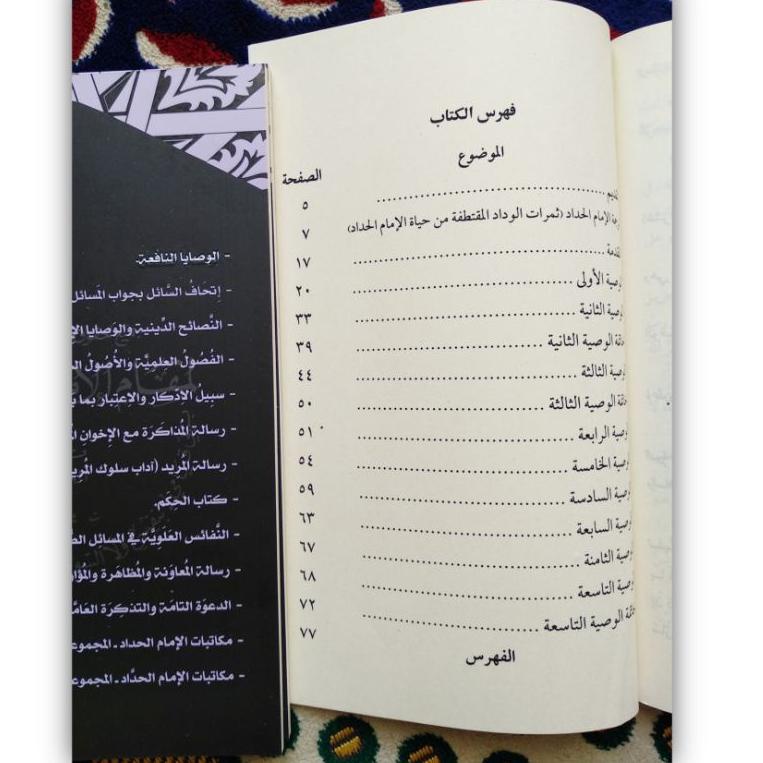 فهرس الكتاب
الموضوع
الصفحة
............ ٥
الإمام الحداد (ثمرات الوداد المقتطفة من حياة الإمام الحداد) ٧
............ ١٧
الأولى ............ ٢٠
الثانية ............ ٣٣
الوصية الثانية ............ ٣٩
الثالثة ............ ٤٤
الوصية الثالثة ............ ٥٠
الرابعة ............ ٥١
الخامسة ............ ٥٤
السادسة ............ ٥٩
السابعة ............ ٦٣
الثامنة ............ ٦٧
التاسعة ............ ٦٨
الوصية التاسعة ............ ٧٢
الفهرس ٧٧
- الوصايا النافعة.
- إتحافُ السَّائل بجواب المَسائل
- النَّصائح الدِّينية والوَصايا
- الفُصُول العِلميَّة والأُصُولُ
- سبيلُ الاذكار والاِعتِبار بما
- رسالة المُذاكَرَة مع الإخوان
- رسالة المُريد (آداب سلوك المُريد
- كتاب الحِكَم.
- النَّفائس العَلَويَّة في المسائل
- رسالة المُعاوَنة والمُظاهَرة
- الدعوَة التامَة والتذكِرَة
- مكاتبات الإمام الحداد ـ
- مكاتبات الإمام الحدَّاد ـ